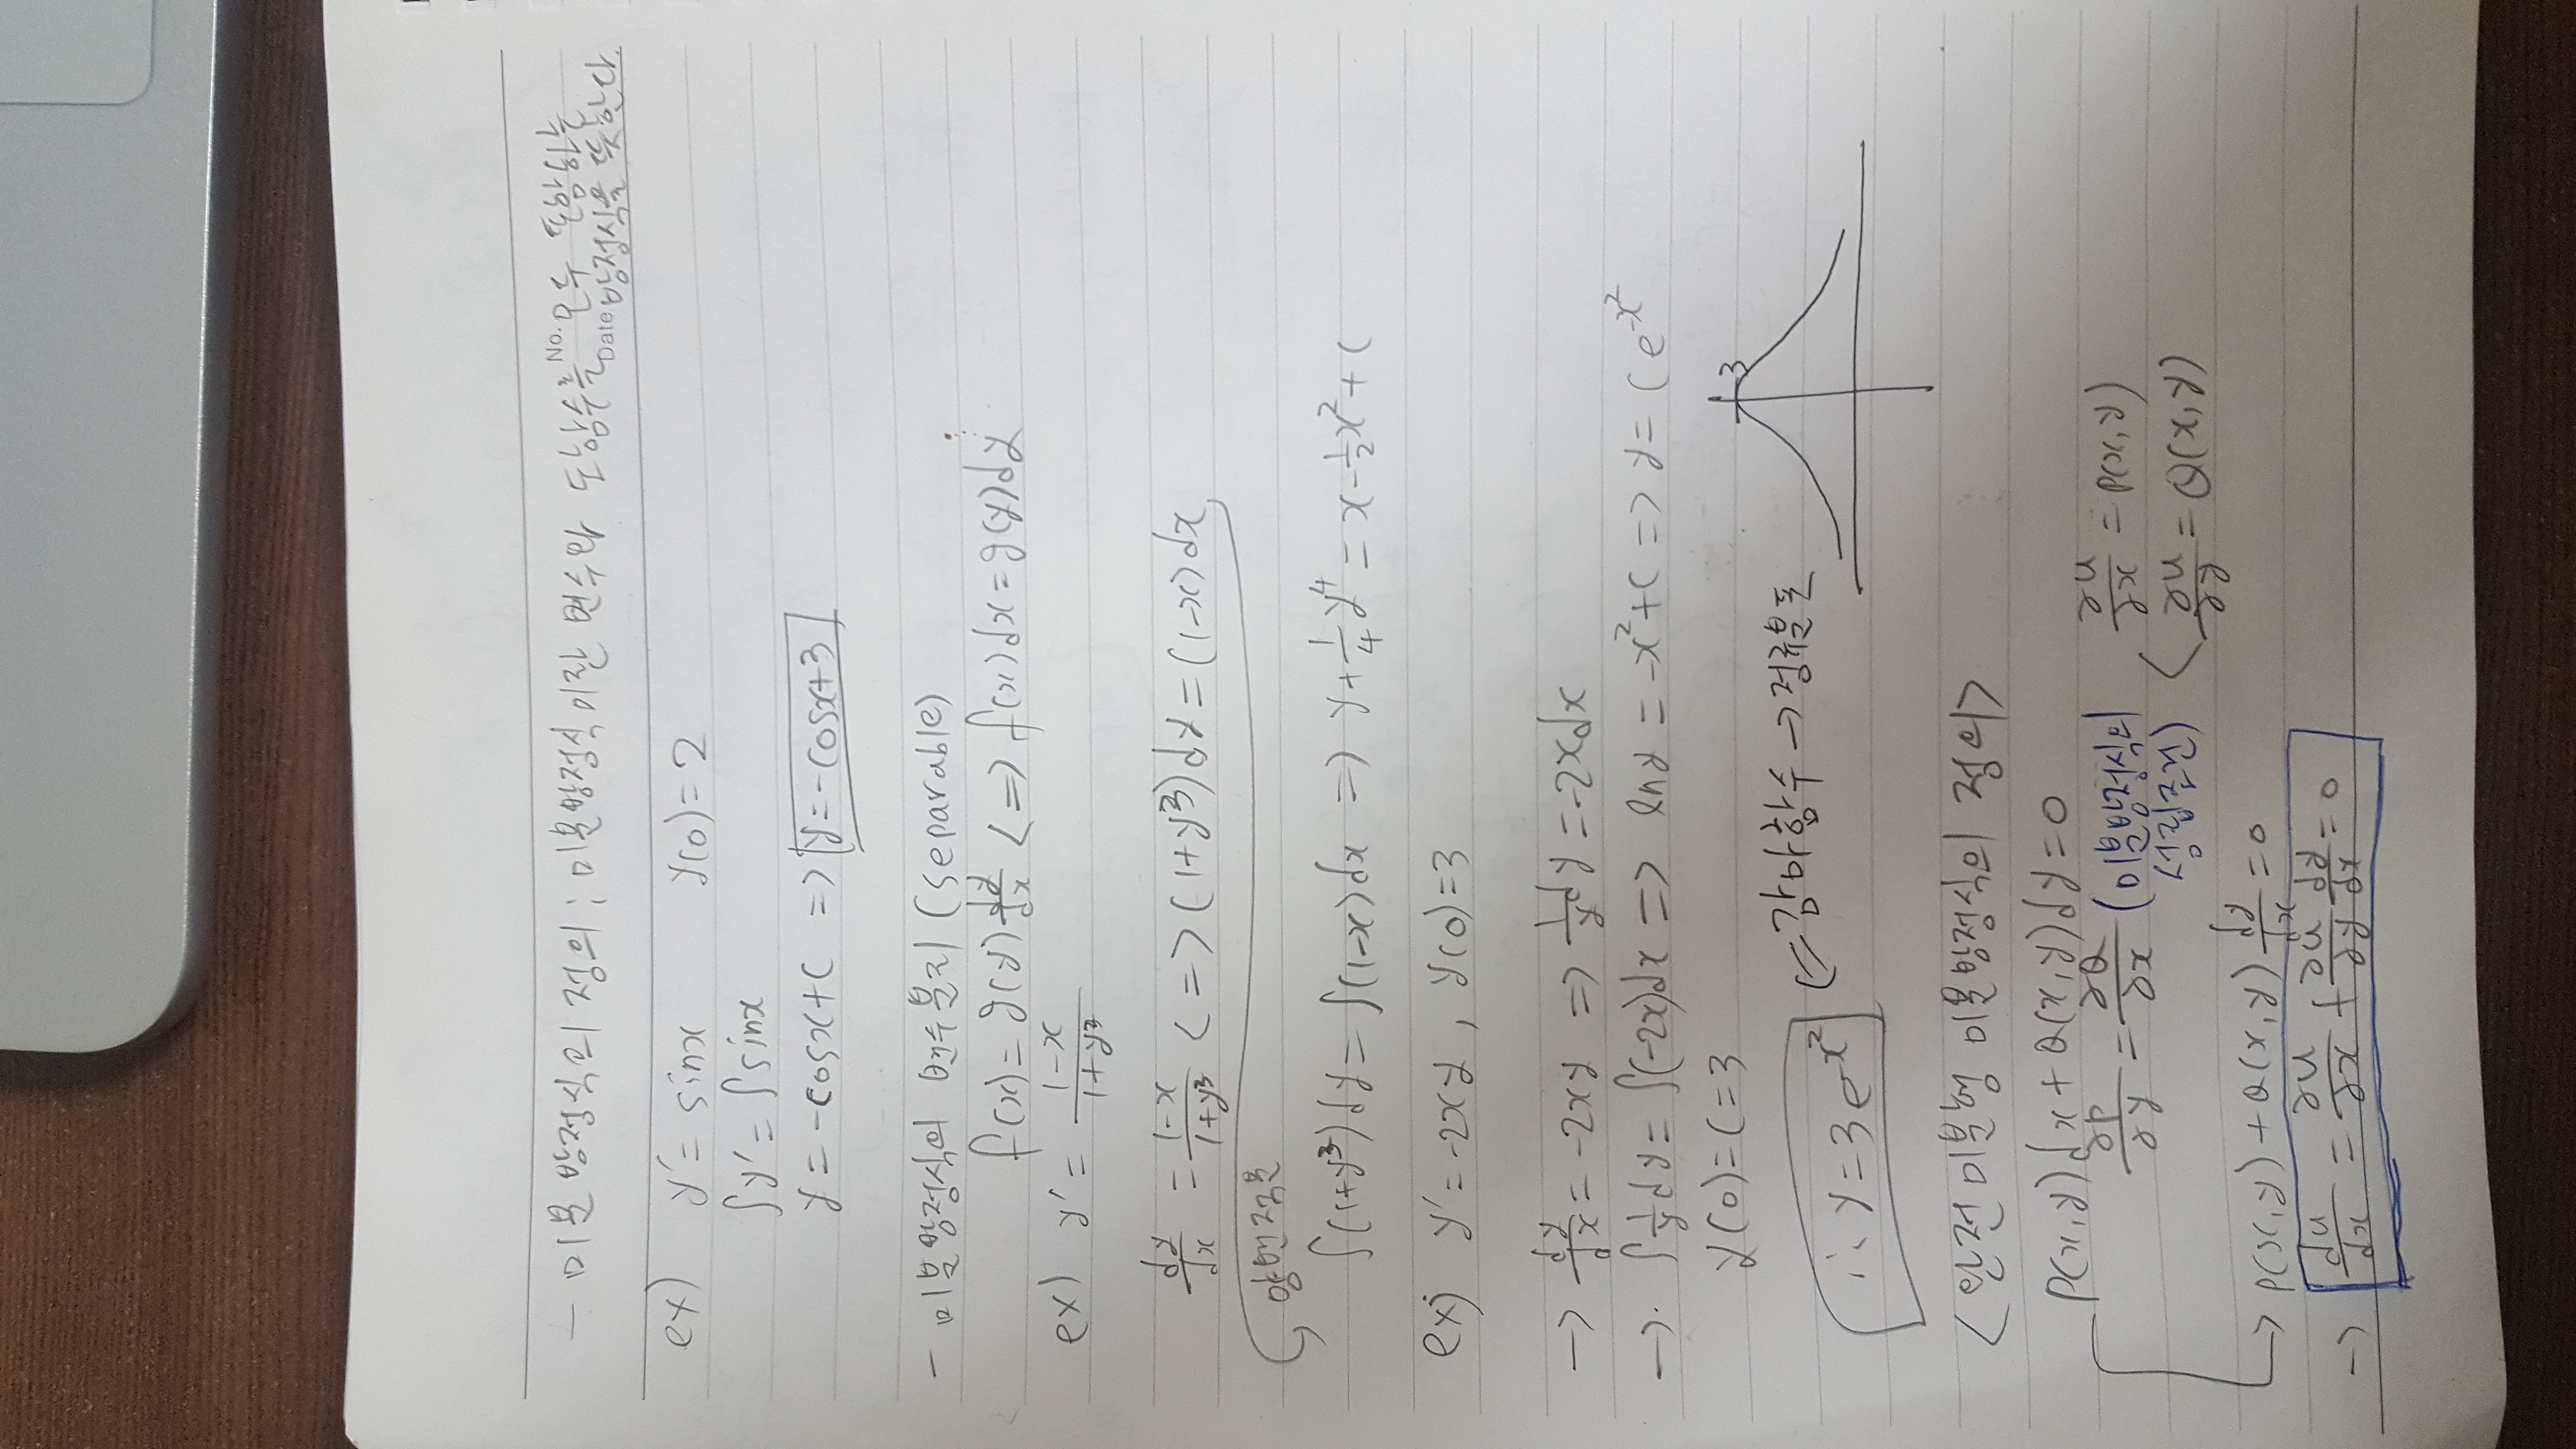 - 미분방정식의 정의 ; 미분방정식이란 변수와 도함수를 모두 포함하는
No.
Date
방정식을 뜻한다.
ex) y' = sinx y(0) = 2
∫y' = ∫sinx
y = -cosx+C => y=-cosx+3
- 미분방정식의 변수분리 (separable)
f(x) = g(y) dy/dx <=> f(x)dx = g(y)dy
ex) y' = (1-x)/(1+y³)
dy/dx = (1-x)/(1+y³) <=> (1+y³)dy = (1-x)dx
양변적분
∫(1+y³)dy = ∫(1-x)dx => y + 1/4 y⁴ = x - 1/2 x² + C
ex) y' = -2xy , y(0)=3
-> dy/dx = -2xy => 1/y dy = -2xdx
-> ∫ 1/y dy = ∫(-2x)dx => lny = -x²+C => y = Ce^-x²
y(0) = C = 3
3
∴ y = 3e^-x² <= 감마함수 → 정규분포
<완전미분형 미분방정식의 정의>
P(x,y)dx + Q(x,y)dy = 0
∂P/∂y = ∂Q/∂x (미분방정식의 ∂u/∂x = P(x,y)
성립조건) ∂u/∂y = Q(x,y)
-> P(x,y) + Q(x,y) dy/dx = 0
-> du/dx = ∂u/∂x + ∂u/∂y dy/dx = 0